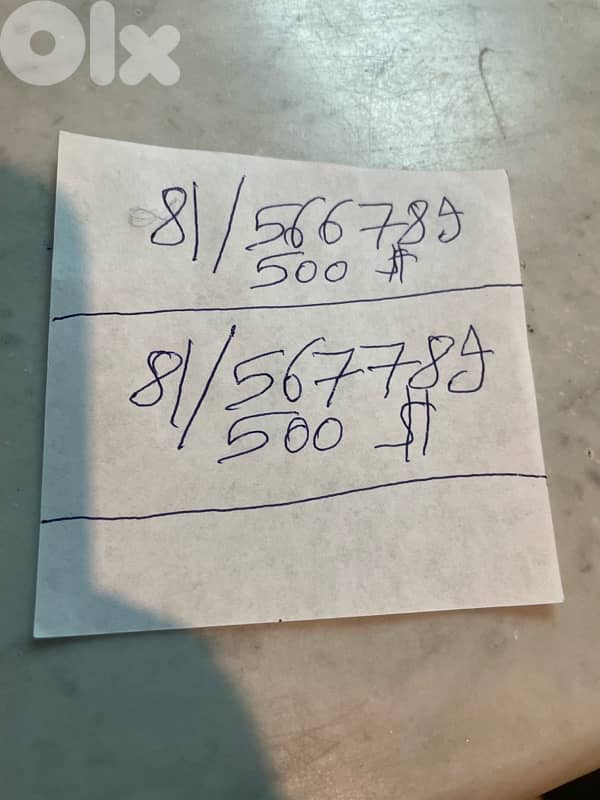 OLX
81/566789
500 $
81/567789
500 $